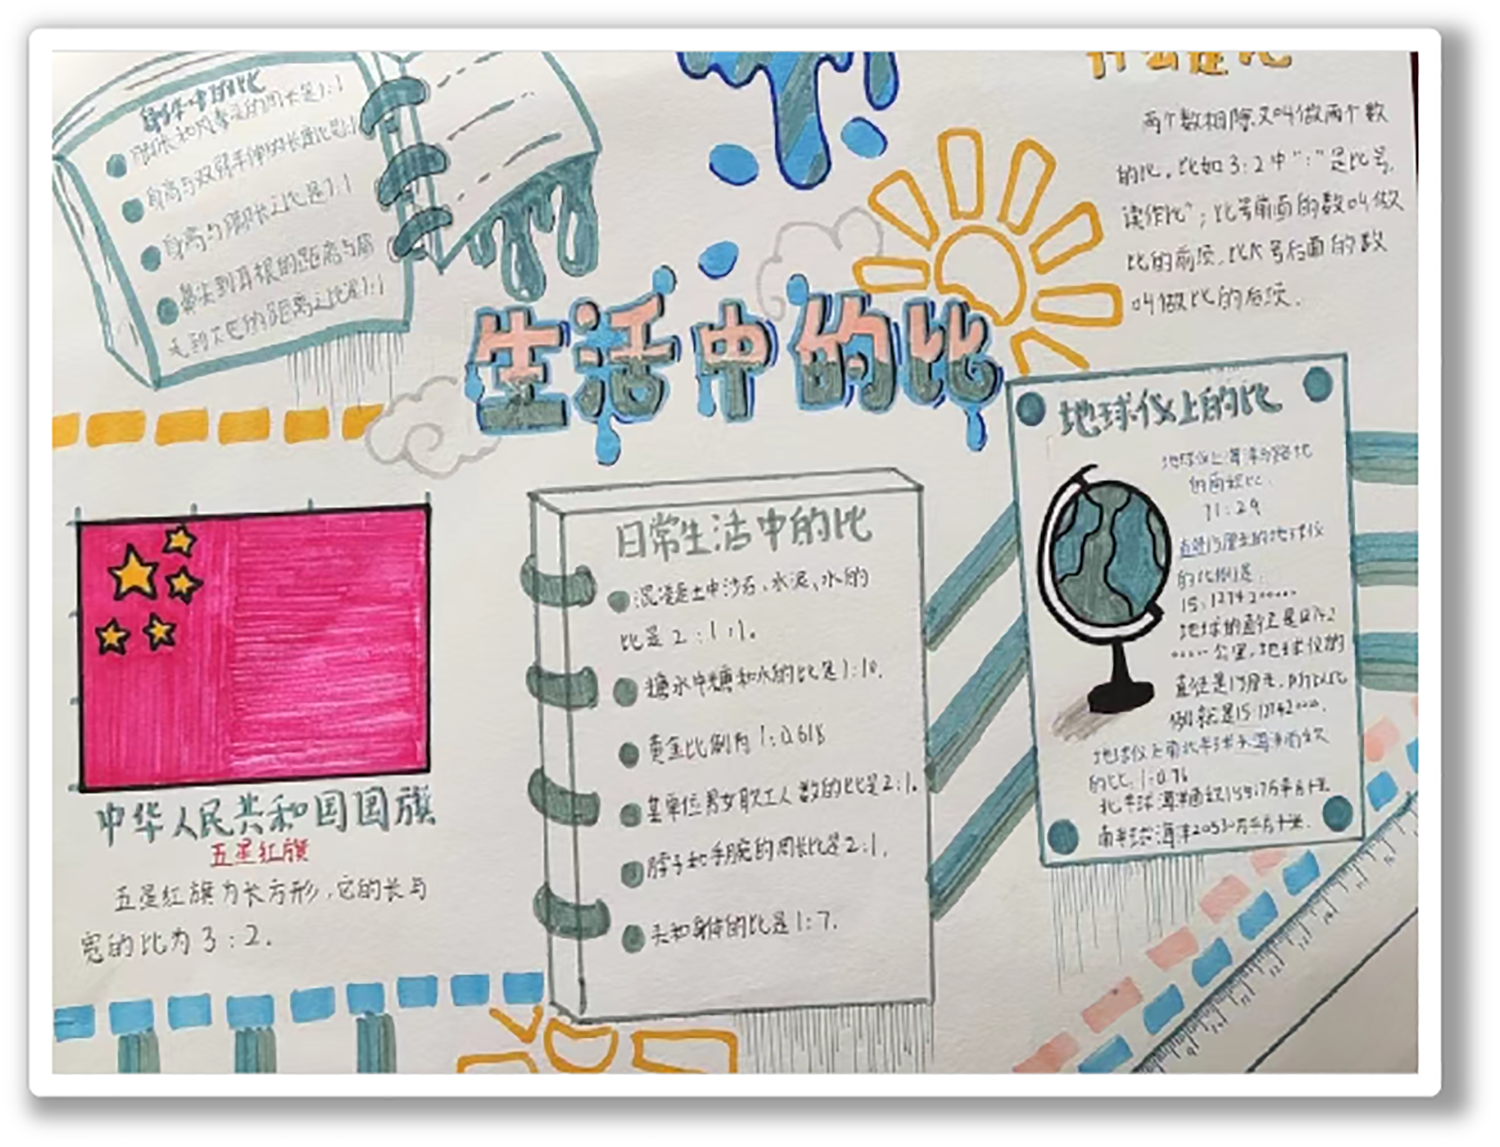 身体中的比
脚长和风拳头的周长是1:1
身高与双臂平伸的长度比是1:1
身高与脚长之比是7:1
鼻尖到耳根的距离与鼻
尖到下巴的距离之比是1:1
什么是比
两个数相除又叫做两个数
的比，比如3:2中":"是比号，
读作比"；比号前面的数叫做
比的前项，比号后面的数
叫做比的后项．
生活中的比
中华人民共和国国旗
五星红旗
五星红旗为长方形，它的长与
宽的比为3:2．
日常生活中的比
混凝土中沙石、水泥、水的
比是2:1:1。
糖水中糖和水的比是1:10．
黄金比例为1:0.618
某单位男女职工人数的比是2:1．
脖子和手腕的周长比是2:1．
头和身体的比是1:7．
地球仪上的比
地球仪上海洋与陆地
的面积比．
71:29
直径15厘米的地球仪
的比例是
15:1274200000
地球的直径是
公里，地球仪的
直径是15厘米，所以比
例就是15:
地球仪上南北半球海洋面积
的比：1:0.76
北半球海洋面积15517万平方千米
南半球海洋20530万平方千米．